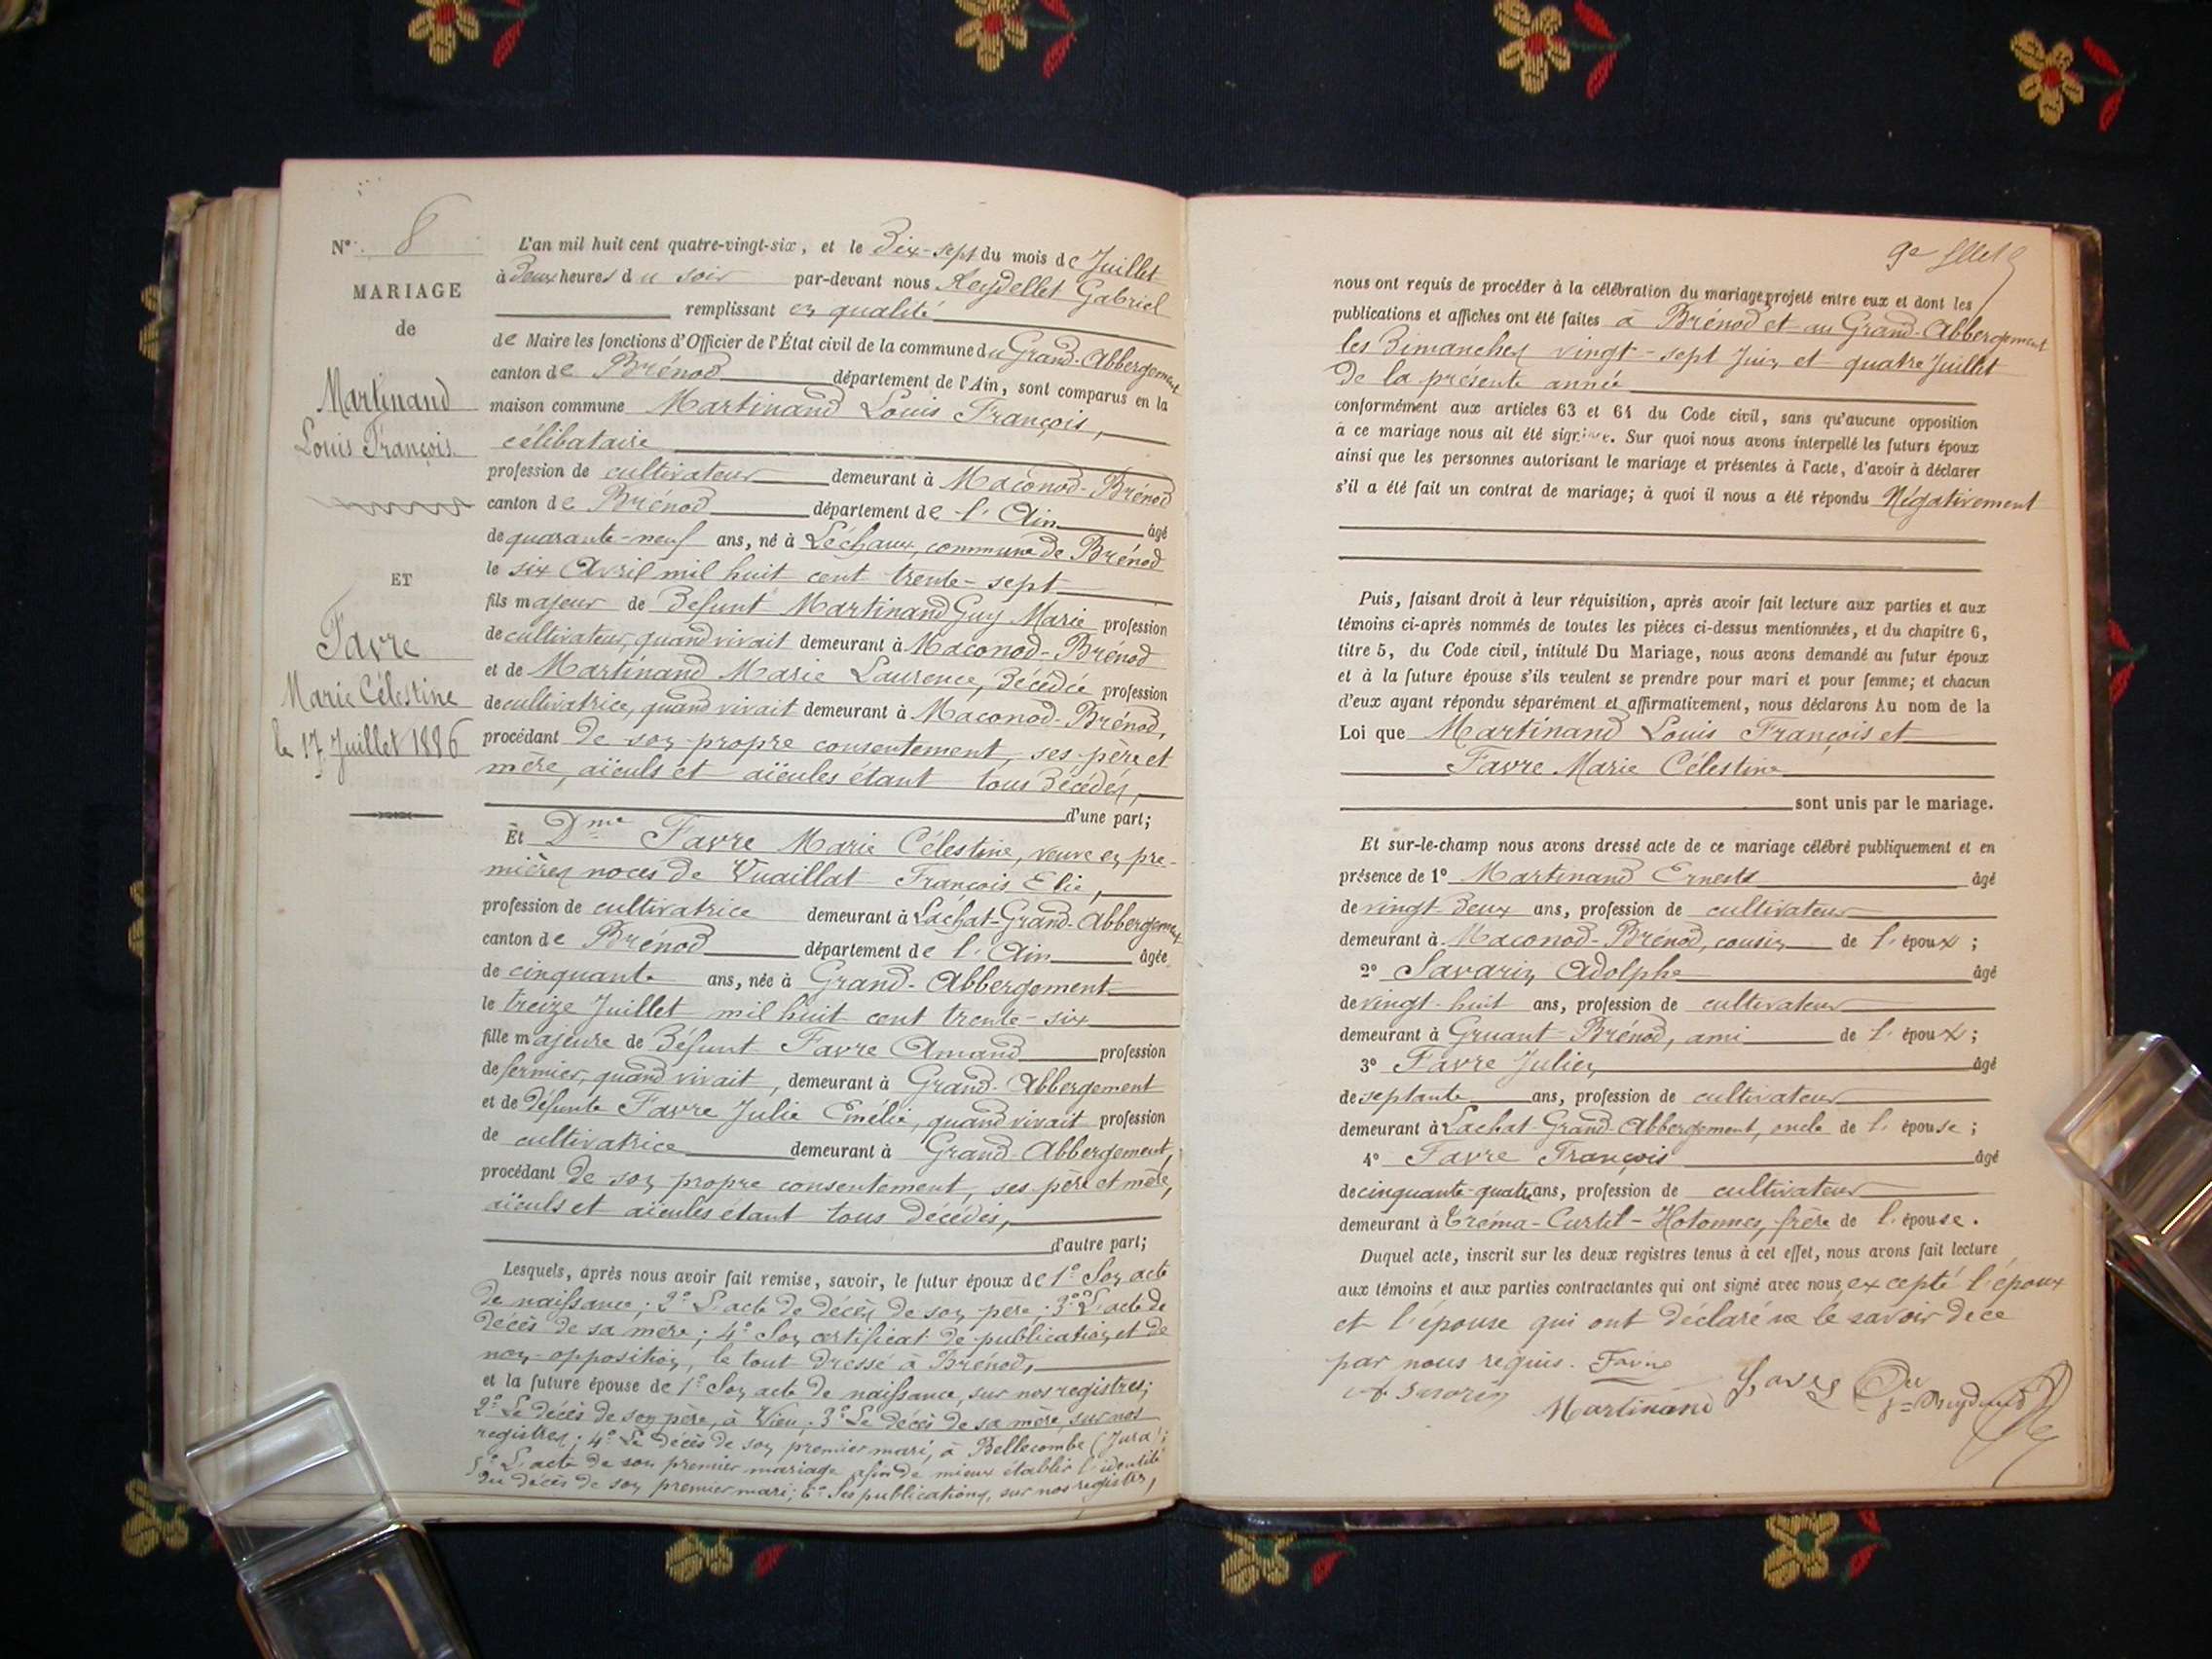 N° 8
MARIAGE
de
Martinand
Louis François
ET
Favre
Marie Célestine
le 17 Juillet 1886
L'an mil huit cent quatre-vingt-six, et le Dix-sept du mois de Juillet
à Deux heures du soir par-devant nous Reydellet Gabriel
remplissant en qualité
de Maire les fonctions d'Officier de l'État civil de la commune du Grand-Abbergement
canton de Brénod département de l'Ain, sont comparus en la
maison commune Martinand Louis François,
célibataire
profession de cultivateur demeurant à Maconod-Brénod
canton de Brénod département de l'Ain âgé
de quarante-neuf ans, né à Léchaux, commune de Brénod
le six Avril mil huit cent trente-sept
fils majeur de Défunt Martinand Guy Marie profession
de cultivateur, quand vivait demeurant à Maconod-Brénod
et de Martinand Marie Laurence, Décédée profession
de cultivatrice, quand vivait demeurant à Maconod-Brénod,
procédant de son propre consentement, ses père et
mère, aïeuls et aïeules étant tous Décédés,
d'une part;
Et Dme Favre Marie Célestine, veuve en pre-
mières noces de Vuaillat François Elie,
profession de cultivatrice demeurant à Lachat-Grand-Abbergement
canton de Brénod département de l'Ain âgée
de cinquante ans, née à Grand-Abbergement
le treize Juillet mil huit cent trente-six
fille majeure de Défunt Favre Amand profession
de fermier, quand vivait, demeurant à Grand-Abbergement
et de Défunte Favre Julie Emélie, quand vivait profession
de cultivatrice demeurant à Grand-Abbergement,
procédant de son propre consentement, ses père et mère,
aïeuls et aïeules étant tous décédés,
d'autre part;
Lesquels, après nous avoir fait remise, savoir, le futur époux de 1° Son acte
de naissance; 2° L'acte de décès de son père; 3° L'acte de
décès de sa mère; 4° Son certificat de publication et de
non-opposition, le tout dressé à Brénod,
et la future épouse de 1° Son acte de naissance, sur nos registres;
2° Le décès de son père, à Vieu; 3° Le décès de sa mère, sur nos
registres; 4° Le décès de son premier mari, à Bellecombe (Jura);
5° L'acte de son premier mariage afin de mieux établir l'identité
du décès de son premier mari; 6° Ses publications, sur nos registres,
nous ont requis de procéder à la célébration du mariage projeté entre eux et dont les
publications et affiches ont été faites à Brénod et au Grand-Abbergement
les Dimanches vingt-sept Juin et quatre Juillet
de la présente année
conformément aux articles 63 et 64 du Code civil, sans qu'aucune opposition
à ce mariage nous ait été signifiée. Sur quoi nous avons interpellé les futurs époux
ainsi que les personnes autorisant le mariage et présentes à l'acte, d'avoir à déclarer
s'il a été fait un contrat de mariage; à quoi il nous a été répondu Négativement
Puis, faisant droit à leur réquisition, après avoir fait lecture aux parties et aux
témoins ci-après nommés de toutes les pièces ci-dessus mentionnées, et du chapitre 6,
titre 5, du Code civil, intitulé Du Mariage, nous avons demandé au futur époux
et à la future épouse s'ils veulent se prendre pour mari et pour femme; et chacun
d'eux ayant répondu séparément et affirmativement, nous déclarons Au nom de la
Loi que Martinand Louis François et
Favre Marie Célestine
sont unis par le mariage.
Et sur-le-champ nous avons dressé acte de ce mariage célébré publiquement et en
présence de 1° Martinand Ernest âgé
de vingt-Deux ans, profession de cultivateur
demeurant à Maconod-Brénod, cousin de l'époux;
2° Savarin Adolphe âgé
de vingt-huit ans, profession de cultivateur
demeurant à Gruant-Brénod, ami de l'époux;
3° Favre Julien âgé
de septante ans, profession de cultivateur
demeurant à Lachat-Grand-Abbergement, oncle de l'épouse;
4° Favre François âgé
de cinquante-quatre ans, profession de cultivateur
demeurant à Tréma-Curtil-Hotonnes, frère de l'épouse.
Duquel acte, inscrit sur les deux registres tenus à cet effet, nous avons fait lecture
aux témoins et aux parties contractantes qui ont signé avec nous, excepté l'époux
et l'épouse qui ont déclaré ne le savoir de ce
par nous requis. Favre
A Savarin Martinand